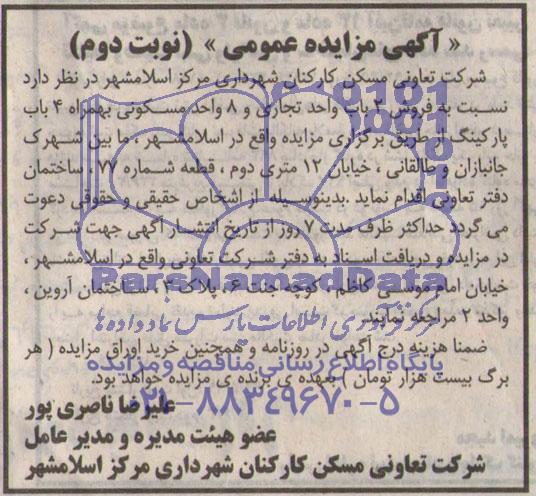 « آگهی مزایده عمومی » (نوبت دوم)
شرکت تعاونی مسکن کارکنان شهرداری مرکز اسلامشهر در نظر دارد
نسبت به فروش ۲ باب واحد تجاری و ۸ واحد مسکونی بهمراه ۴ باب
پارکینگ از طریق برگزاری مزایده واقع در اسلامشهر ، ما بین شهرک
جانبازان و طالقانی ، خیابان ۱۲ متری دوم ، قطعه شماره ۷۷ ، ساختمان
دفتر تعاونی اقدام نماید .بدینوسیله از اشخاص حقیقی و حقوقی دعوت
می گردد حداکثر ظرف مدت ۷ روز از تاریخ انتشار آگهی جهت شرکت
در مزایده و دریافت اسناد به دفتر شرکت تعاونی واقع در اسلامشهر ،
خیابان امام موسی کاظم ، کوچه جنت ۶ ، پلاک ۳ ، ساختمان آروین ،
واحد ۲ مراجعه نمایند.
ضمنا هزینه درج آگهی در روزنامه و همچنین خرید اوراق مزایده ( هر
برگ بیست هزار تومان ) بعهده ی برنده ی مزایده خواهد بود.
علیرضا ناصری پور
عضو هیئت مدیره و مدیر عامل
شرکت تعاونی مسکن کارکنان شهرداری مرکز اسلامشهر
ParsNamadData
مرکز فرآوری اطلاعات پارس نماد داده ها
پایگاه اطلاع رسانی مناقصه و مزایده
۰۲۱-۸۸۳۴۹۶۷۰-۵